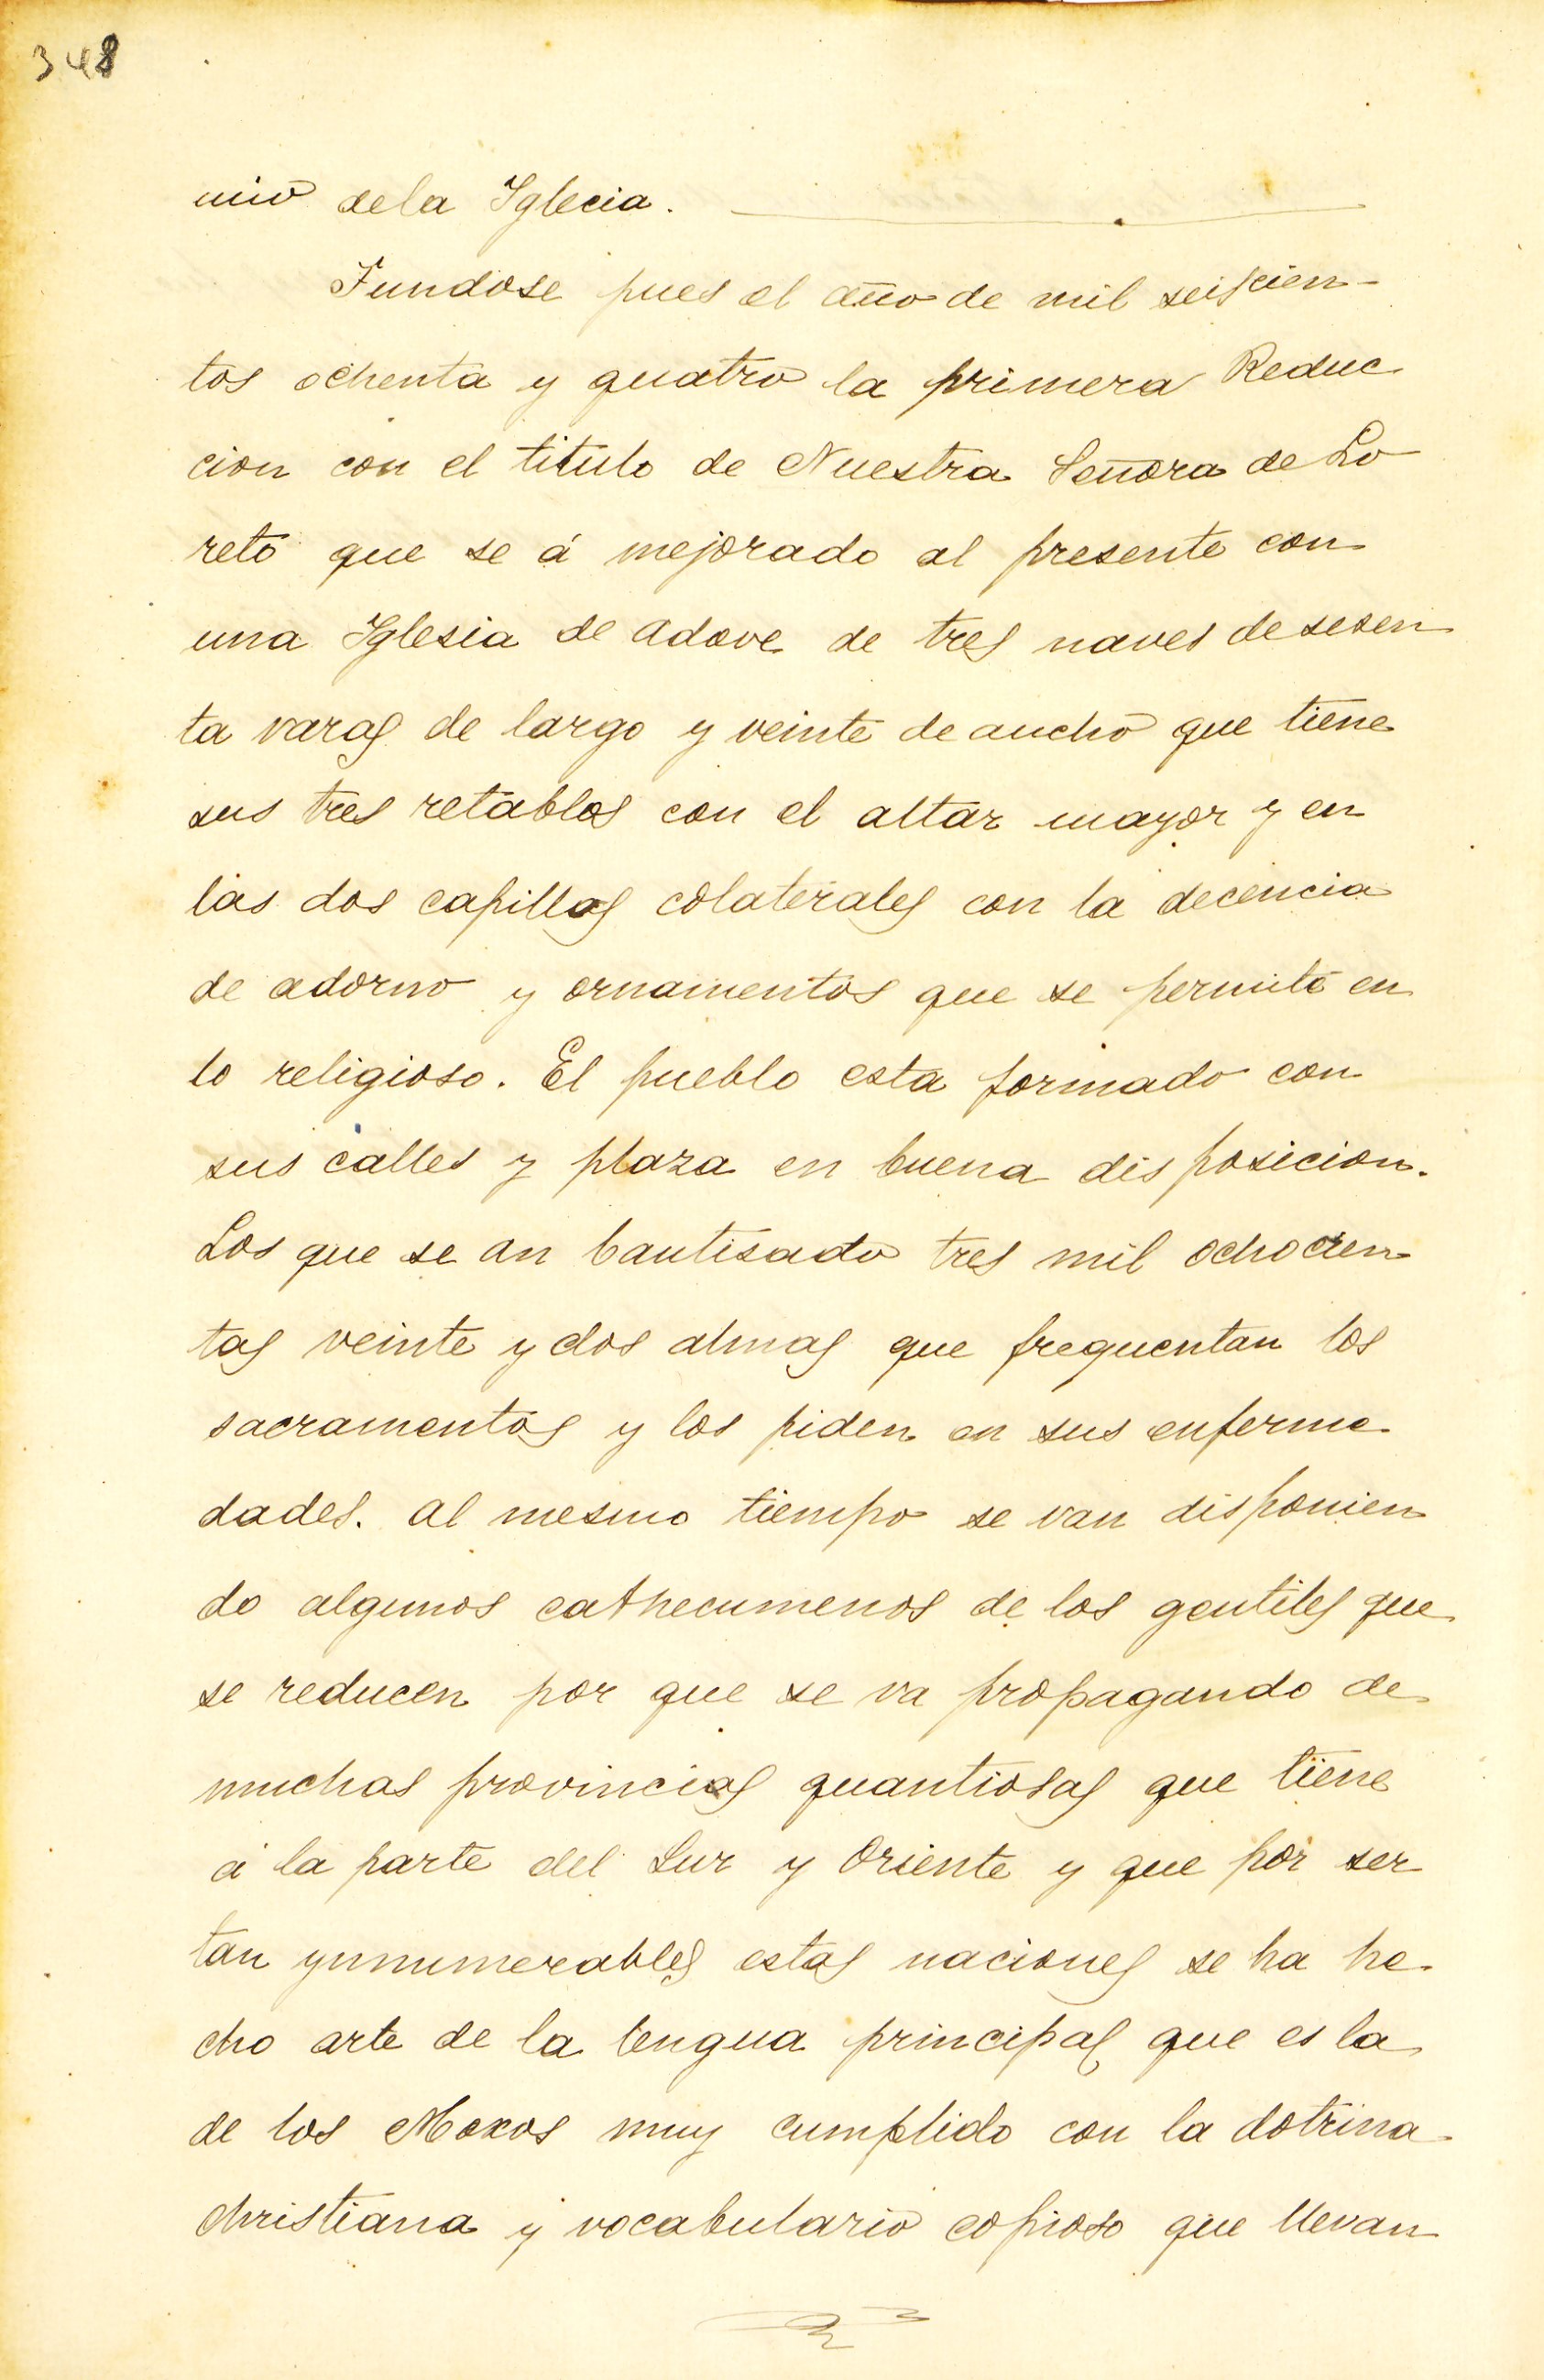 348
mio dela Iglecia.
Fundose pues el año de mil seiscien-
tos ochenta y quatro la primera Reduc
cion con el titulo de Nuestra Señora de Lo
reto que se á mejorado al presente con
una Iglesia de adove de tres naves de sesen
ta varas de largo y veinte de ancho que tiene
sus tres retablos con el altar mayor y en
las dos capillas colaterales con la decencia
de adorno y ornamentos que se permite en
lo religioso. El pueblo esta formado con
sus calles y plaza en buena disposicion.
Los que se an bautisado tres mil ochocien
tas veinte y dos almas que frequentan los
sacramentos y los piden en sus enferme
dades. al mesmo tiempo se van disponien
do algunos cathecumenos de los gentiles que
se reducen por que se va propagando de
muchas provincias quantiosas que tiene
á la parte del Sur y Oriente y que por ser
tan ynnumerables estas naciones se ha he
cho arte de la lengua principal que es la
de los Moxos muy cumplido con la dotrina
christiana y vocabulario copioso que llevan